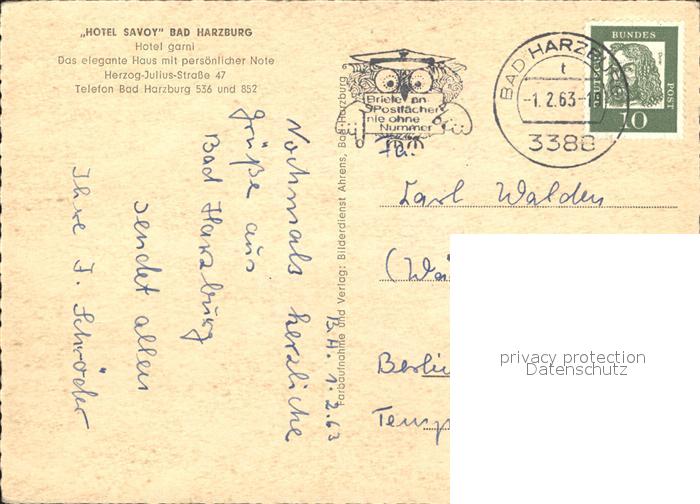 „HOTEL SAVOY" BAD HARZBURG
Hotel garni
Das elegante Haus mit persönlicher Note
Herzog-Julius-Straße 47
Telefon Bad Harzburg 536 und 852
B.H. 1.2.63
Nochmals herzliche
Grüße aus
Bad Harzburg
sendet allen
Ihre J. Schröder
Farbaufnahme und Verlag: Bilderdienst Ahrens, Bad Harzburg
Briefe an
Postfächer
nie ohne
Nummer
BAD HARZB
t
-1.2.63-
3388
BUNDES
POST
10
Fa.
Carl Walden
Berlin
privacy protection
Datenschutz